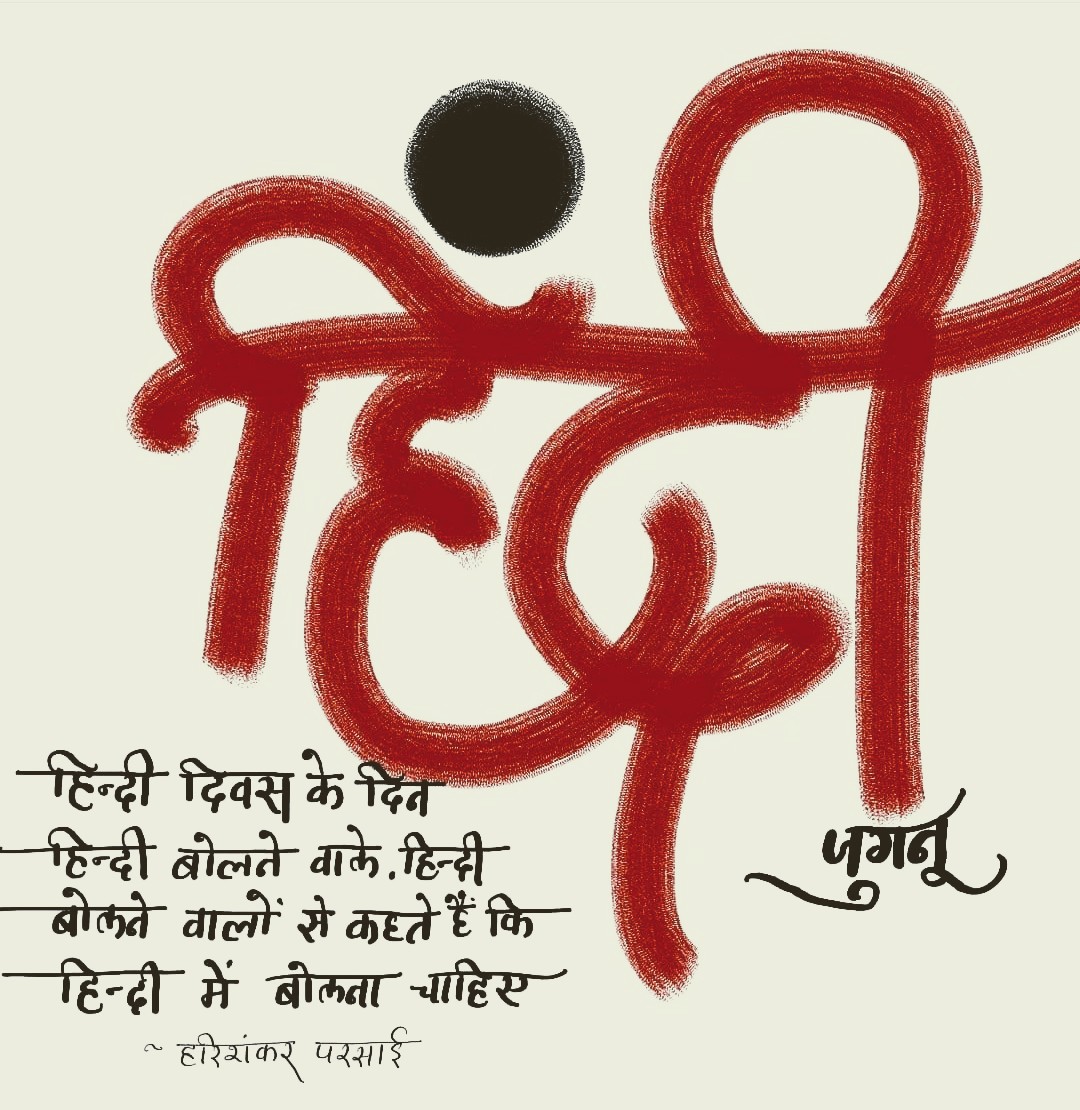 हिंदी
हिन्दी दिवस के दिन
हिन्दी बोलने वाले, हिन्दी
बोलने वालों से कहते हैं कि
हिन्दी में बोलना चाहिए
~ हरिशंकर परसाई
जुगनू